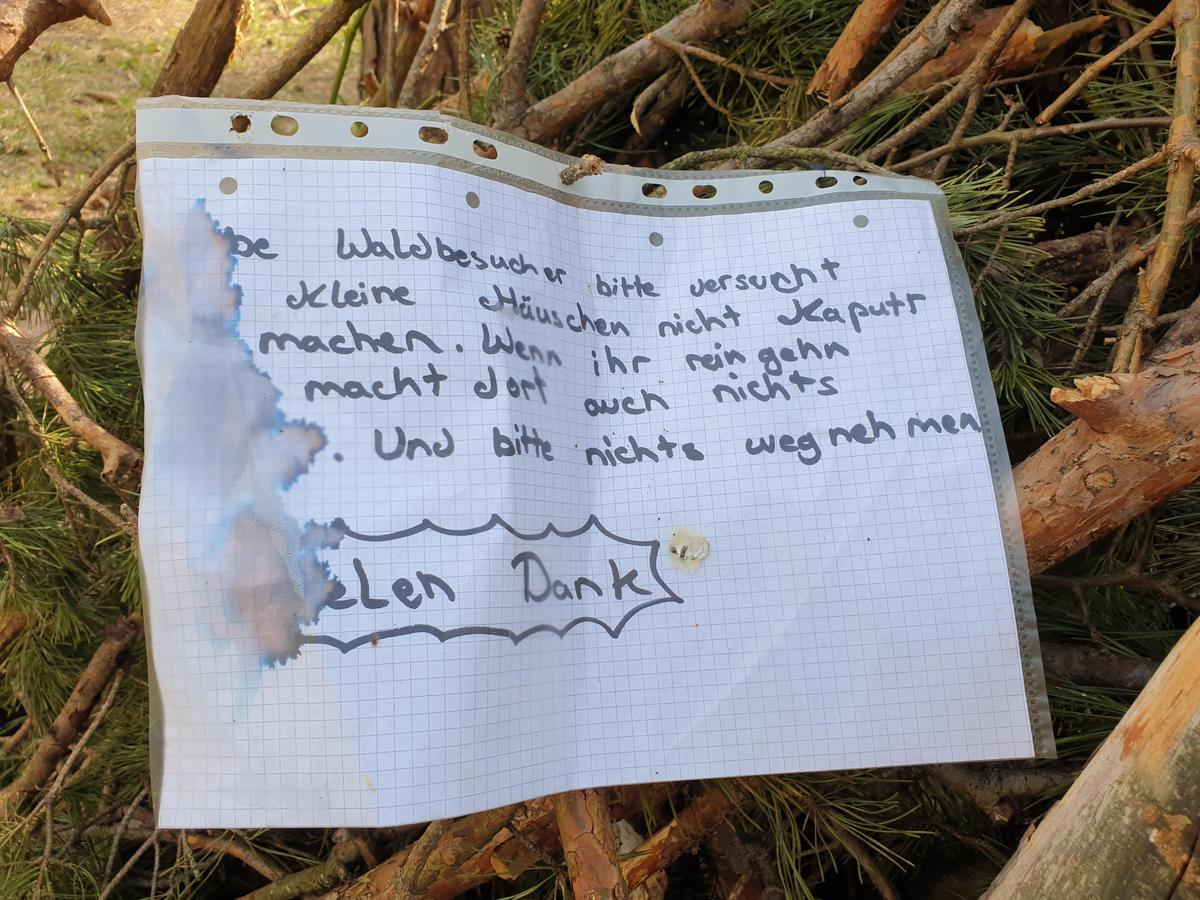 be Waldbesucher bitte versucht
Kleine Häuschen nicht Kaputt
machen. Wenn ihr rein gehn
macht dort auch nichts
. Und bitte nichts wegnehmen
elen Dank